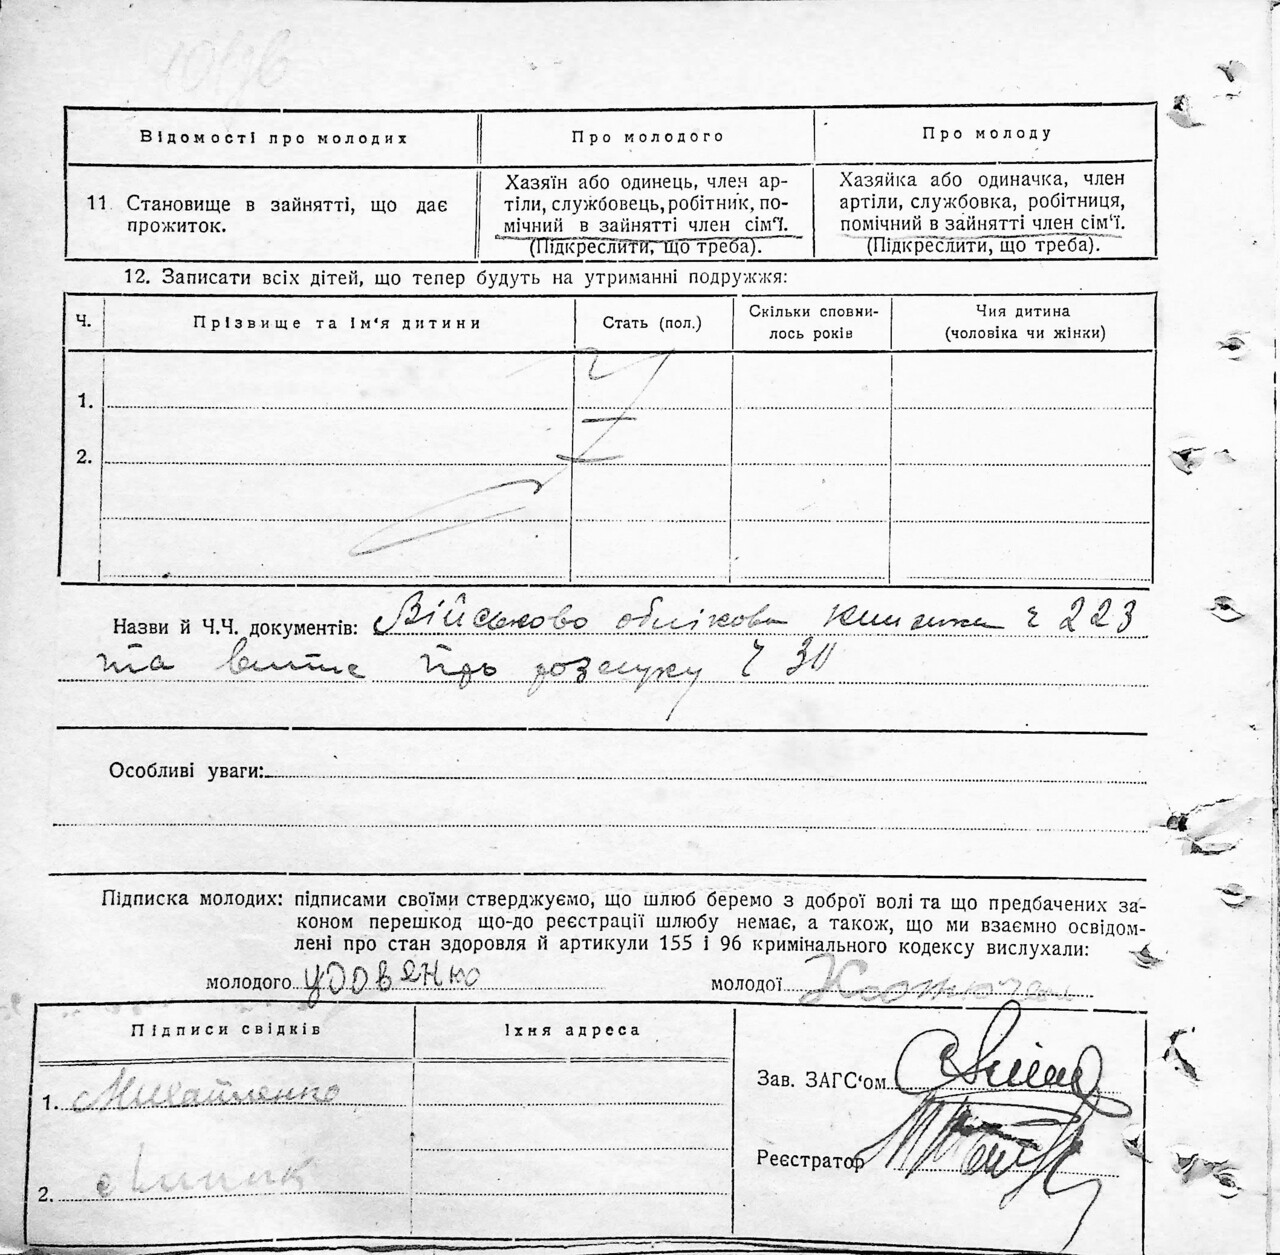 Відомості про молодих Про молодого Про молоду
11. Становище в зайнятті, що дає прожиток.
Хазяїн або одинець, член ар-
тіли, службовець, робітник, по-
мічний в зайнятті член сім'ї.
(Підкреслити, що треба).
Хазяйка або одиначка, член
артіли, службовка, робітниця,
помічний в зайнятті член сім'ї.
(Підкреслити, що треба).
12. Записати всіх дітей, що тепер будуть на утриманні подружжя:
Ч. Прізвище та ім'я дитини Стать (пол.) Скільки сповни-
лось років Чия дитина
(чоловіка чи жінки)
1.
2.
Назви й Ч.Ч. документів: Військово облікова книжка ч 223
та витяг про розлуку ч 30
Особливі уваги:
Підписка молодих: підписами своїми стверджуємо, що шлюб беремо з доброї волі та що предбачених за-
коном перешкод що-до реєстрації шлюбу немає, а також, що ми взаємно освідом-
лені про стан здоровля й артикули 155 і 96 кримінального кодексу вислухали:
молодого Удовенко молодої
Підписи свідків Їхня адреса
Зав. ЗАГС'ом
1. Михайленко
Реєстратор
2.